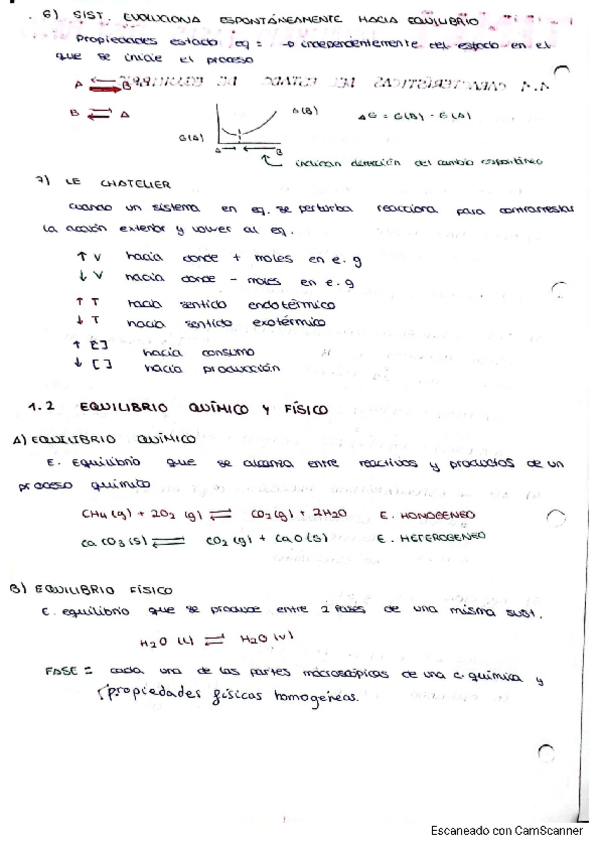 6) SIST. EVOLUCIONA ESPONTÁNEAMENTE HACIA EQUILIBRIO
Propiedades estado eq = → independientemente del estado en el
que se inicie el proceso
A ⇌ B
B ⇌ A
G(A)
G(B)
A
B
ΔG = G(B) - G(A)
indican dirección del cambio espontáneo
7) LE CHATELIER
cuando un sistema en eq. se perturba reacciona para contrarrestar
la acción exterior y volver al eq.
↑ V hacia donde + moles en e. g
↓ V hacia donde - moles en e. g
↑ T hacia sentido endotérmico
↓ T hacia sentido exotérmico
↑ [ ] hacia consumo
↓ [ ] hacia producción
1.2 EQUILIBRIO QUÍMICO Y FÍSICO
A) EQUILIBRIO QUÍMICO
E. Equilibrio que se alcanza entre reactivos y productos de un
proceso químico
CH4 (g) + 2O2 (g) ⇌ CO2 (g) + 2H2O E. HOMOGENEO
CaCO3 (s) ⇌ CO2 (g) + CaO (s) E. HETEROGENEO
B) EQUILIBRIO FÍSICO
E. equilibrio que se produce entre 2 fases de una misma sust.
H2O (l) ⇌ H2O (v)
FASE = cada una de las partes macroscópicas de una c. química y
propiedades físicas homogéneas.
Escaneado con CamScanner